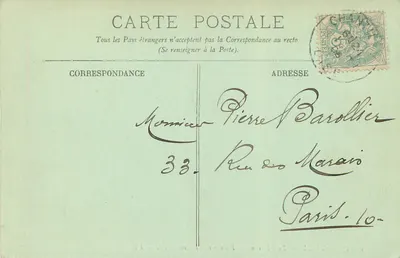 CARTE POSTALE
Tous les Pays étrangers n'acceptent pas la Correspondance au recto
(Se renseigner à la Poste).
CORRESPONDANCE
ADRESSE
Monsieur Pierre Barollier
33. Rue des Marais
Paris. 10-